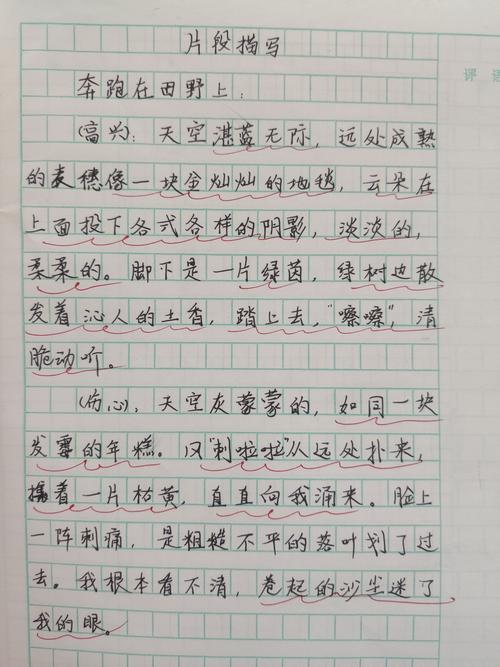 片段描写
评语
奔跑在田野上：
(高兴)：天空湛蓝无际，远处成熟
的麦穗像一块金灿灿的地毯，云朵在
上面投下各式各样的阴影，淡淡的，
柔柔的。脚下是一片绿茵，绿树也散
发着沁人的土香，踏上去，“嚓嚓”，清
脆动听。
(伤心)，天空灰蒙蒙的，如同一块
发霉的年糕。风“刺啦啦”从远处扑来，
攥着一片枯黄，直直向我涌来。脸上
一阵刺痛，是粗糙不平的落叶划了过
去。我根本看不清，卷起的沙尘迷了
我的眼。